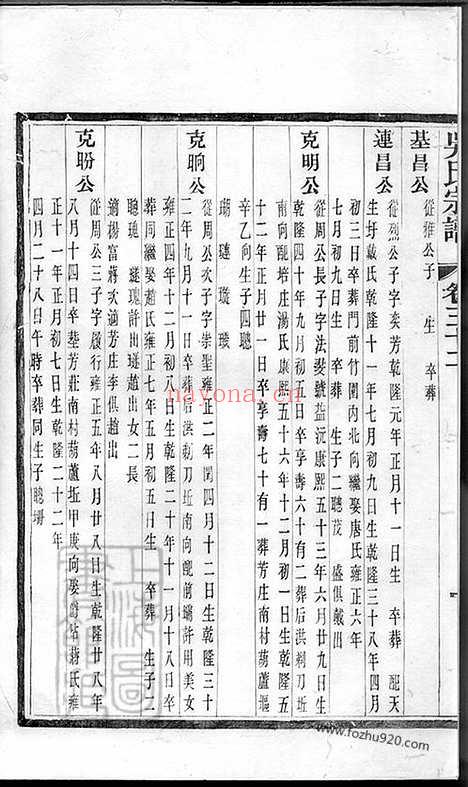 吳氏宗譜 卷三十二
基昌公
從雅公子 生 卒葬
連昌公
從烈公子字奕芳乾隆元年正月十一日生 卒葬 配天
生圩戴氏乾隆十一年七月初九日生乾隆三十八年四月
初三日卒葬門前竹園內北向繼娶唐氏雍正六年
七月初九日生 卒葬 生子二聰茂 盛俱戴出
克明公
從周公長子字法髮號益沅康熙五十三年六月廿九日生
乾隆四十年九月初五日卒享壽六十有二葬後洪剃刀坵
南向配培莊湯氏康熙五十六年十二月初一日生乾隆五
十二年正月初一日卒享壽七十有一葬芳庄南村葫蘆堰
辛乙向生子四聰
瑚 璉 璇 璦
克晌公
從周公次子字崇聖雍正二年閏四月十二日生乾隆三十
二年九月十一日卒葬後洪剃刀坵南向配前墦許用美女
雍正四年十二月初八日生乾隆二十年十一月十八日卒
葬同繼娶趙氏雍正七年五月初五日生 卒葬 生子二
聰璁 璡璁許出璡趙出女二長
適楊富蔣次適芳庄李俱趙出
克盼公
從周公三子字履行雍正五年八月廿八日生乾隆廿八年
八月十四日卒塟芳莊南村葫蘆坵甲庚向娶蔣氏雍
正十一年正月初七日生乾隆二十二年
四月二十八日午時卒葬同生子聰珊
上海圖
nayona.cn
www.fozhu920.com